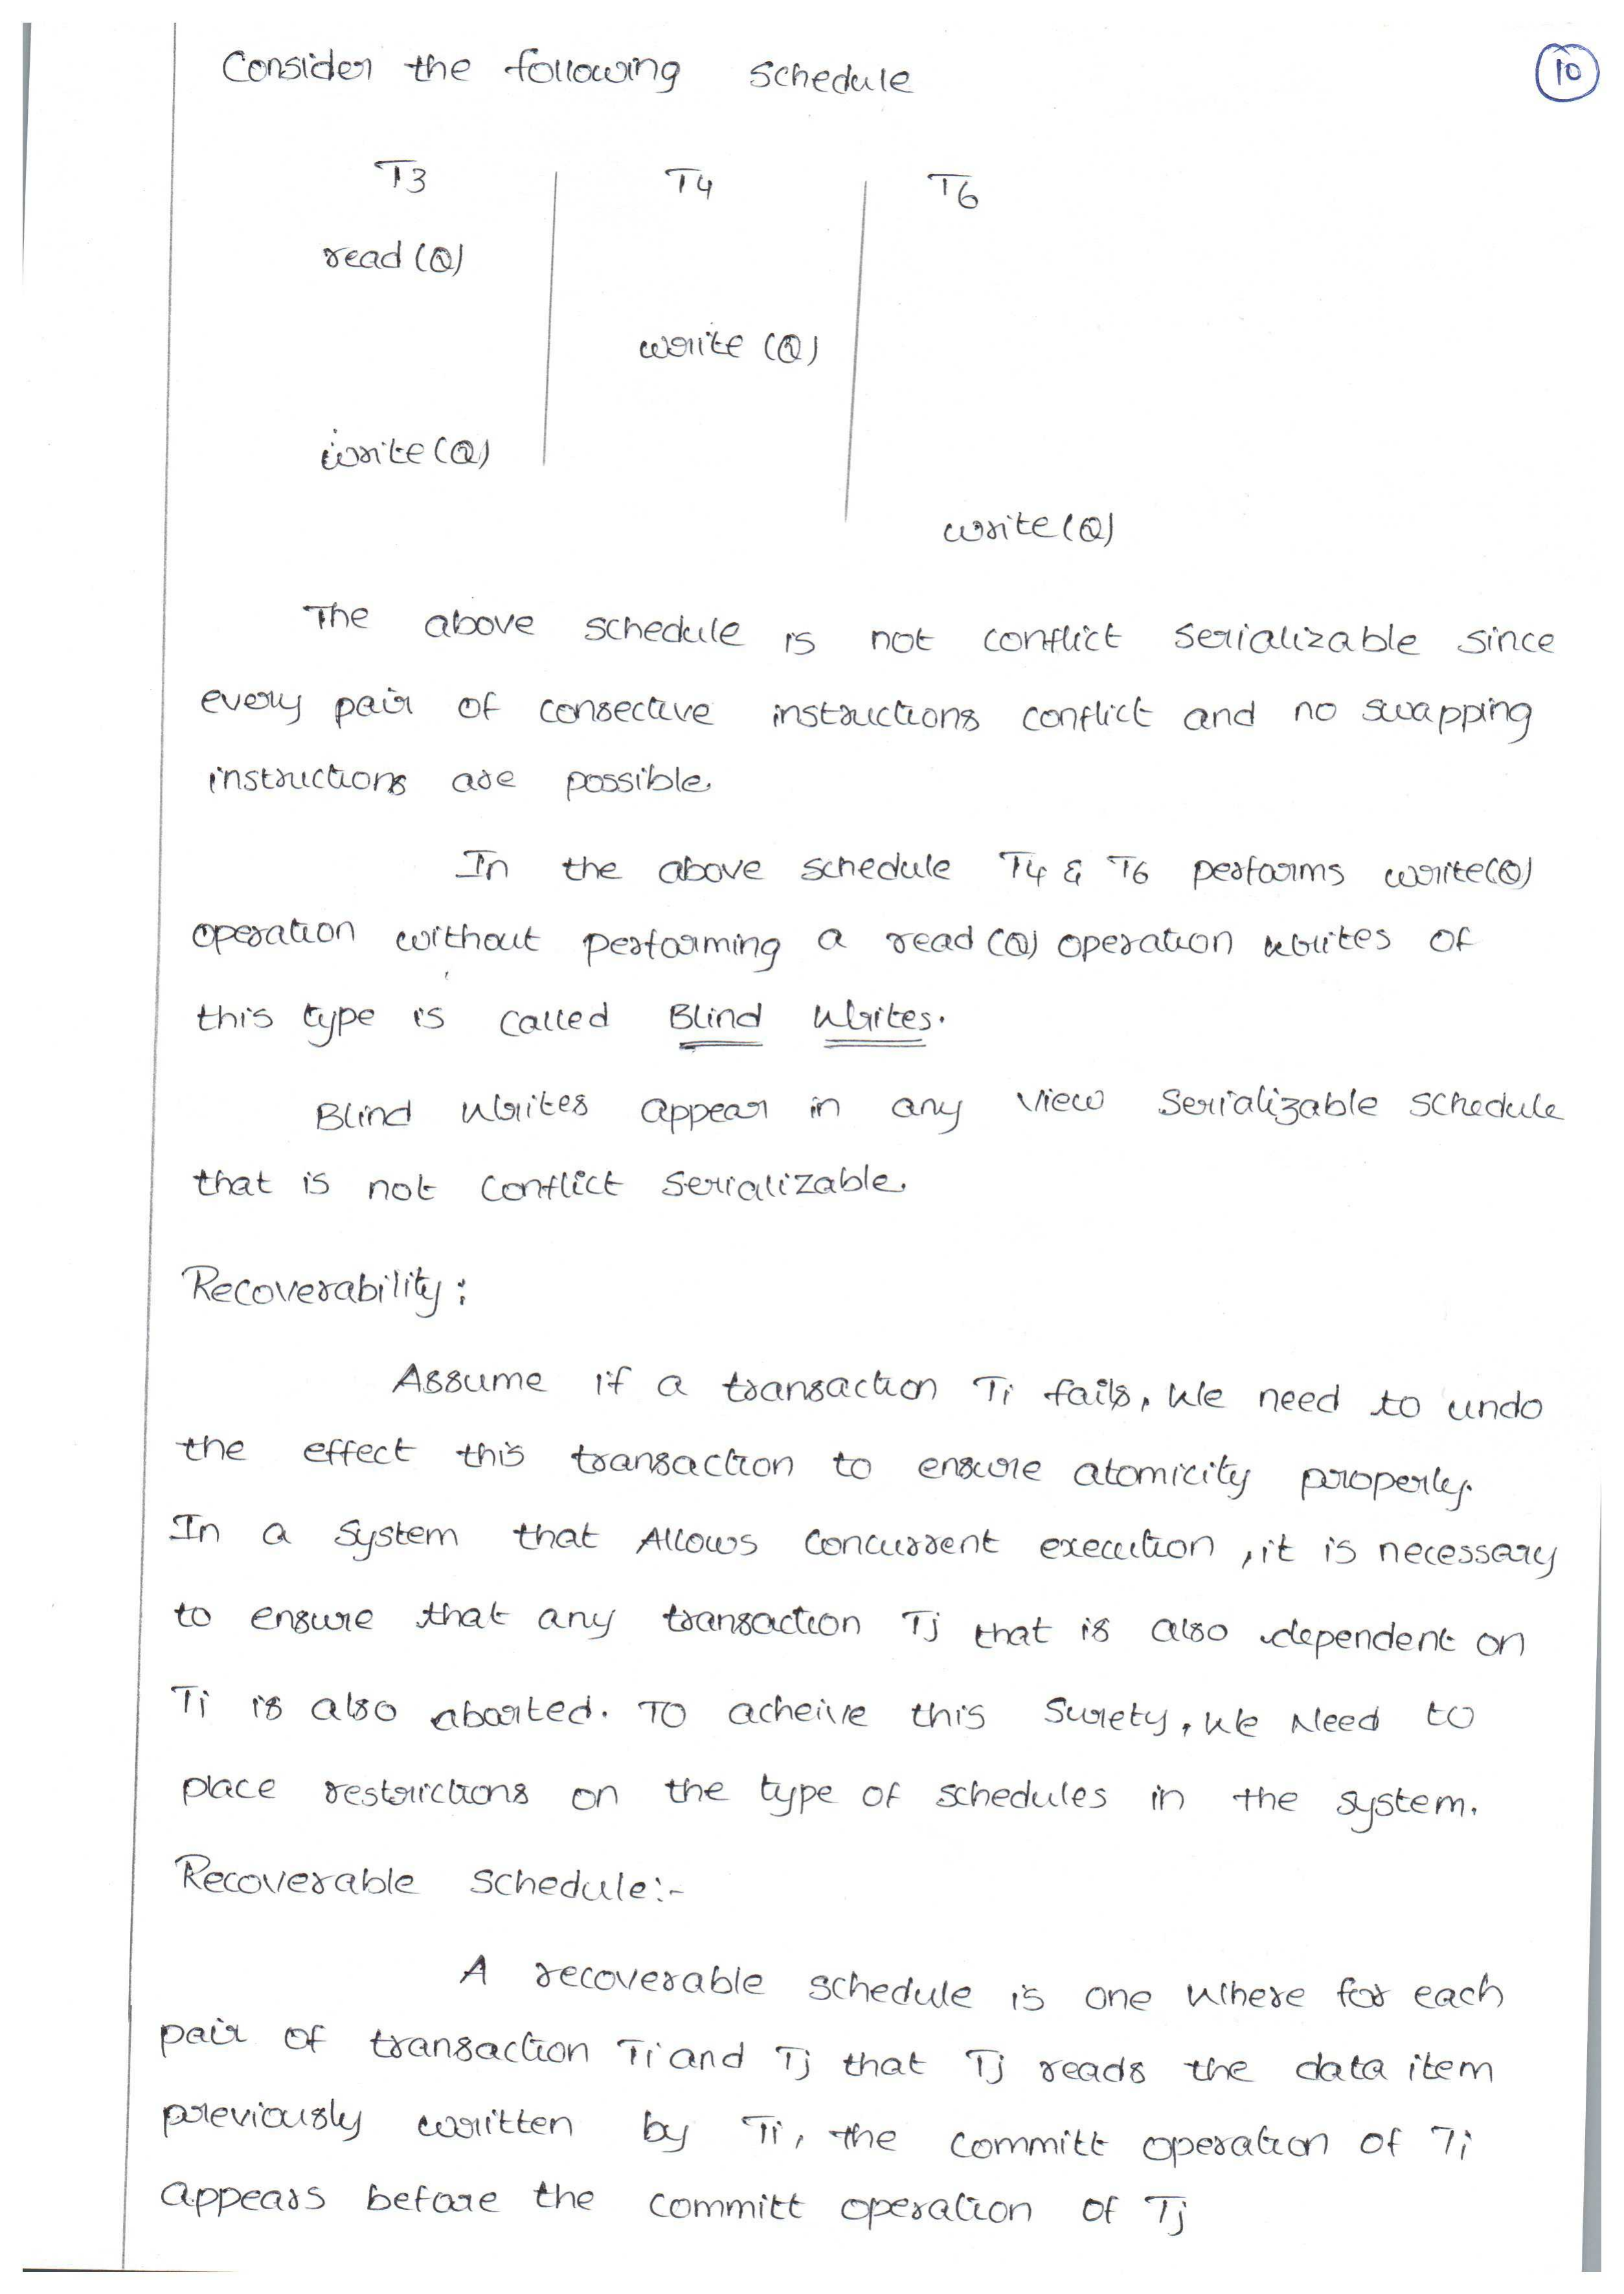 Consider the following schedule
10
T3 T4 T6
read (Q)
write (Q)
write (Q)
write (Q)
The above schedule is not conflict serializable since
every pair of consective instructions conflict and no swapping
instructions are possible.
In the above schedule T4 & T6 performs write(Q)
operation without performing a read (Q) operation writes of
this type is called Blind Writes.
Blind Writes appear in any view serializable schedule
that is not conflict serializable.
Recoverability:
Assume if a transaction Ti fails, we need to undo
the effect this transaction to ensure atomicity properly.
In a system that Allows concurrent execution, it is necessary
to ensure that any transaction Tj that is also dependent on
Ti is also aborted. To acheive this surety, we Need to
place restrictions on the type of schedules in the system.
Recoverable schedule:-
A recoverable schedule is one where for each
pair of transaction Ti and Tj that Tj reads the data item
previously written by Ti, the committ operation of Ti
appears before the committ operation of Tj